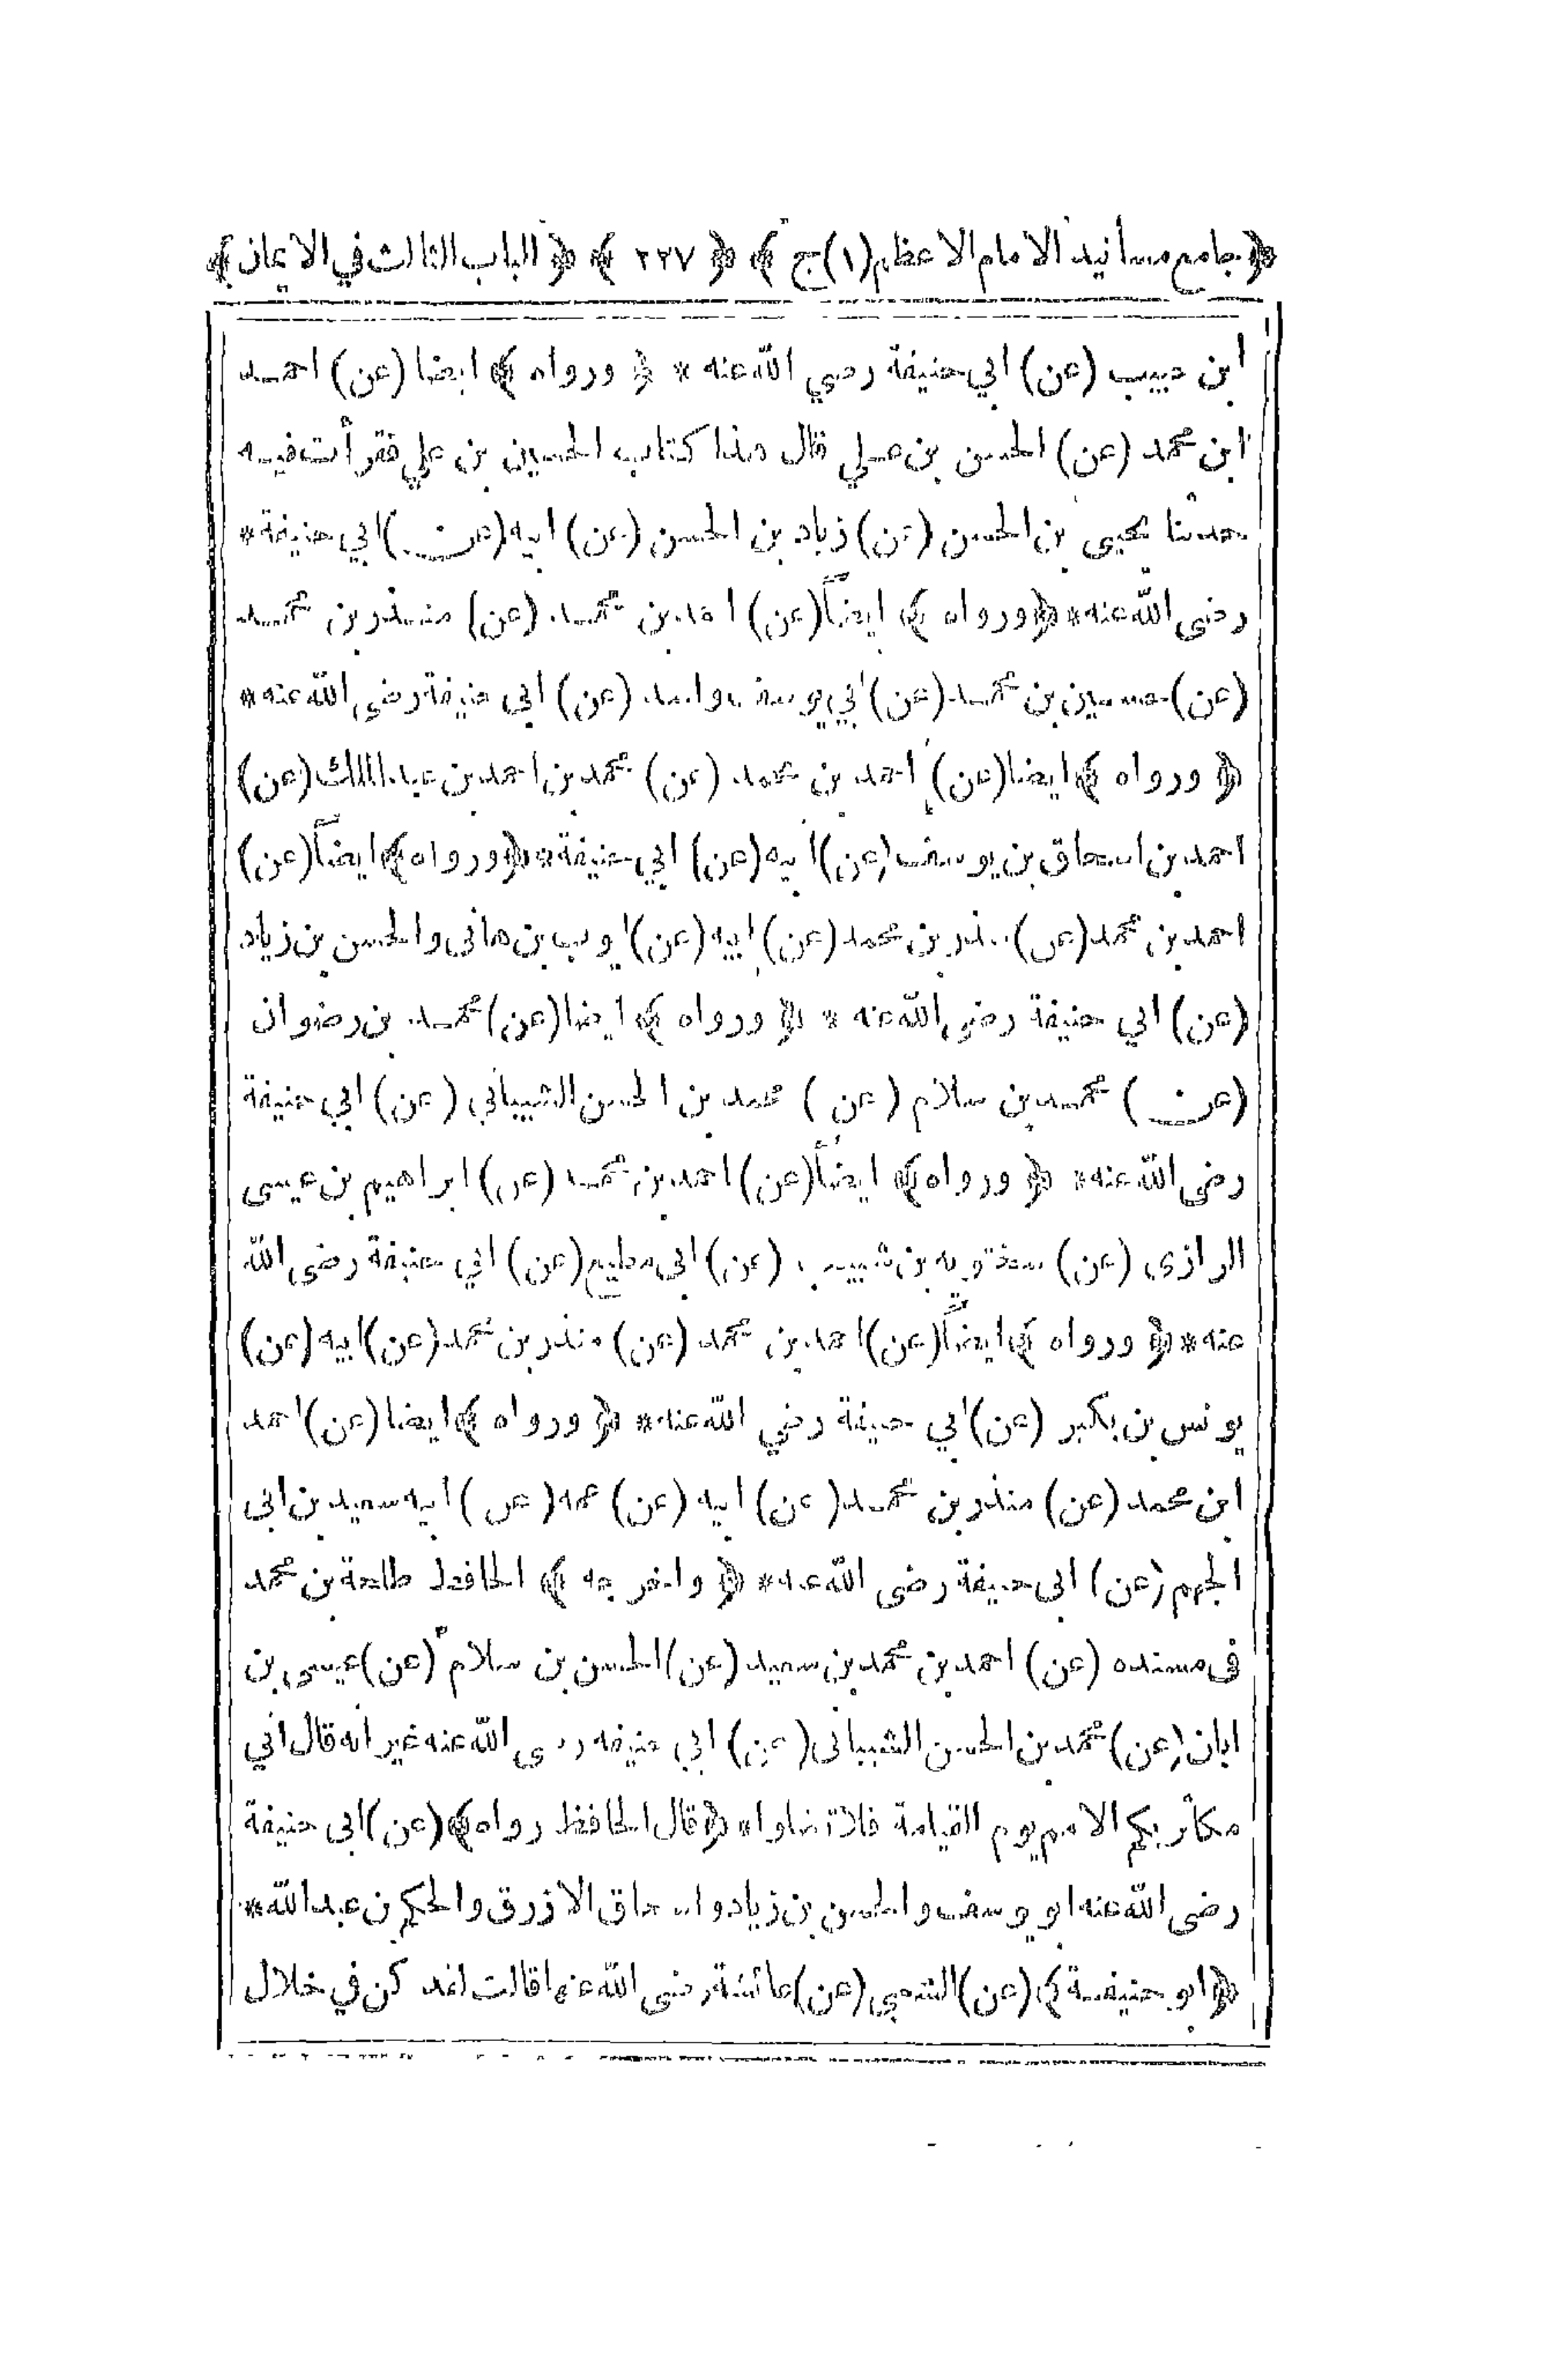 ﴿ جامع مسأنيد الامام الاعظم (١) ج ﴾ ﴿ ٢٢٧ ﴾ ﴿ الباب الثالث في الايمان ﴾
ابن حبيب (عن) ابي حنيفة رضي الله عنه * ﴿ ورواه ﴾ ايضا (عن) احمد
ابن محمد (عن) الحسن بن علي قال هذا كتاب الحسين بن علي فقرأت فيه
حدثنا يحيى بن الحسن (عن) زياد بن الحسن (عن) ابيه (عن) ابي حنيفة *
رضى الله عنه * ﴿ ورواه ﴾ ايضاً (عن) احمد بن محمد (عن) منذر بن محمد
(عن) حسين بن محمد (عن) ابي يوسف واسد (عن) ابى حنيفة رضى الله عنه *
﴿ ورواه ﴾ ايضا (عن) احمد بن محمد (عن) محمد بن احمد بن عبد الملك (عن)
احمد بن اسحاق بن يوسف (عن) ابيه (عن) ابي حنيفة * ﴿ ورواه ﴾ ايضاً (عن)
احمد بن محمد (عن) منذر بن محمد (عن) ابيه (عن) ايوب بن هانى والحسن بن زياد
(عن) ابي حنيفة رضى الله عنه * ﴿ ورواه ﴾ ايضا (عن) محمد بن رضوان
(عن) محمد بن سلام (عن) محمد بن الحسن الشيباني (عن) ابي حنيفة
رضى الله عنه * ﴿ ورواه ﴾ ايضاً (عن) احمد بن محمد (عن) ابراهيم بن عيسى
الرازى (عن) سختويه بن شبيب (عن) ابى مطيع (عن) ابي حنيفة رضى الله
عنه * ﴿ ورواه ﴾ ايضاً (عن) احمد بن محمد (عن) منذر بن محمد (عن) ابيه (عن)
يونس بن بكير (عن) ابي حنيفة رضي الله عنه * ﴿ ورواه ﴾ ايضا (عن) احمد
ابن محمد (عن) منذر بن محمد (عن) ابيه (عن) عمه (عن) ابيه سعيد بن ابى
الجهم (عن) ابى حنيفة رضى الله عنه * ﴿ واخرجه ﴾ الحافظ طلحة بن محمد
فى مسنده (عن) احمد بن محمد بن سعيد (عن) الحسن بن سلام (عن) عيسى بن
ابان (عن) محمد بن الحسن الشيبانى (عن) ابي حنيفه رضى الله عنه غير انه قال انى
مكاثر بكم الامم يوم القيامة فلا تضلوا * ﴿ قال الحافظ رواه ﴾ (عن) ابى حنيفة
رضى الله عنه ابو يوسف والحسن بن زياد واسحاق الازرق والحكم بن عبد الله *
﴿ ابو حنيفة ﴾ (عن) الشعبي (عن) عائشة رضى الله عنها قالت لقد كن في خلال